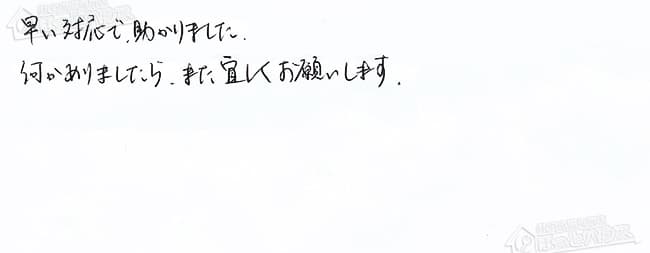 早い対応で、助かりました.
何かありましたら、また宜しくお願いします.